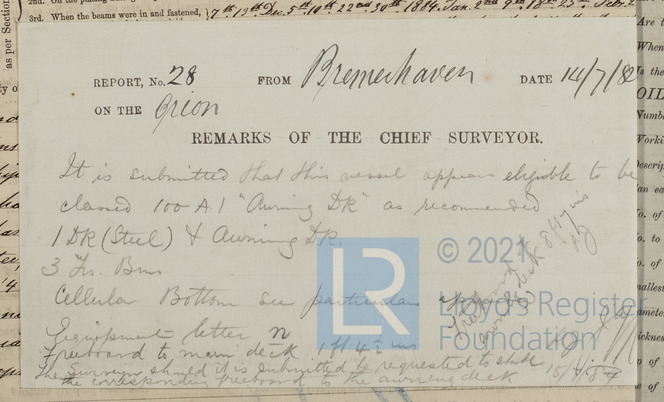 2nd. On the plating
3rd. When the beams were in and fastened, 7th. 13th. Dec. 5th. 10th. 22nd. 30th. 1884. Jan. 2nd 9th. 18th 25th. Feb. 2
as per Section
REPORT, No. 28 FROM Bremerhaven DATE 14/7/8
ON THE Orion
REMARKS OF THE CHIEF SURVEYOR.
It is submitted that this vessel appears eligible to be
classed 100 A.1 "Awning DK" as recommended
1 DK (Steel) & Awning DK.
3 Trs. Bms
Cellular Bottom see particulars
Equipment letter n
Freeboard to main deck 1ft 4½ ins
The Surveyor should it is submitted be requested to state
the corresponding freeboard to the awning deck
Freeboard
awning deck 8ft 7 ins
LR
© 2021
Lloyd's Register
Foundation